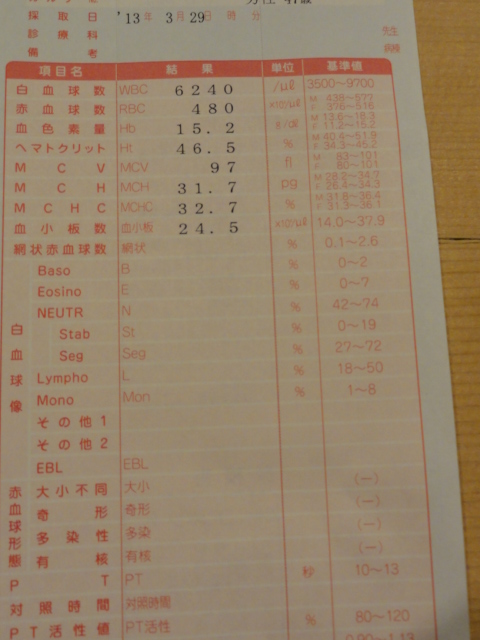 採取日 '13年 3月29日 時 分
診療科 先生
備考 病棟
項目名 結果 単位 基準値
白血球数 WBC 6240 /μl 3500〜9700
赤血球数 RBC 480 ×10⁴/μl M 438〜577 F 376〜516
血色素量 Hb 15.2 g/dl M 13.6〜18.3 F 11.2〜15.2
ヘマトクリット Ht 46.5 % M 40.4〜51.9 F 34.3〜45.2
MCV MCV 97 fl M 83〜101 F 80〜101
MCH MCH 31.7 pg M 28.2〜34.7 F 26.4〜34.3
MCHC MCHC 32.7 % M 31.8〜36.4 F 31.3〜36.1
血小板数 血小板 24.5 ×10⁴/μl 14.0〜37.9
網状赤血球数 網状 % 0.1〜2.6
白血球像
Baso B % 0〜2
Eosino E % 0〜7
NEUTR N % 42〜74
Stab St % 0〜19
Seg Seg % 27〜72
Lympho L % 18〜50
Mono Mon % 1〜8
その他1
その他2
EBL EBL
赤血球形態
大小不同 大小 (−)
奇形 奇形 (−)
多染性 多染 (−)
有核 有核 (−)
PT PT 秒 10〜13
対照時間 対照時間
PT活性値 PT活性 % 80〜120